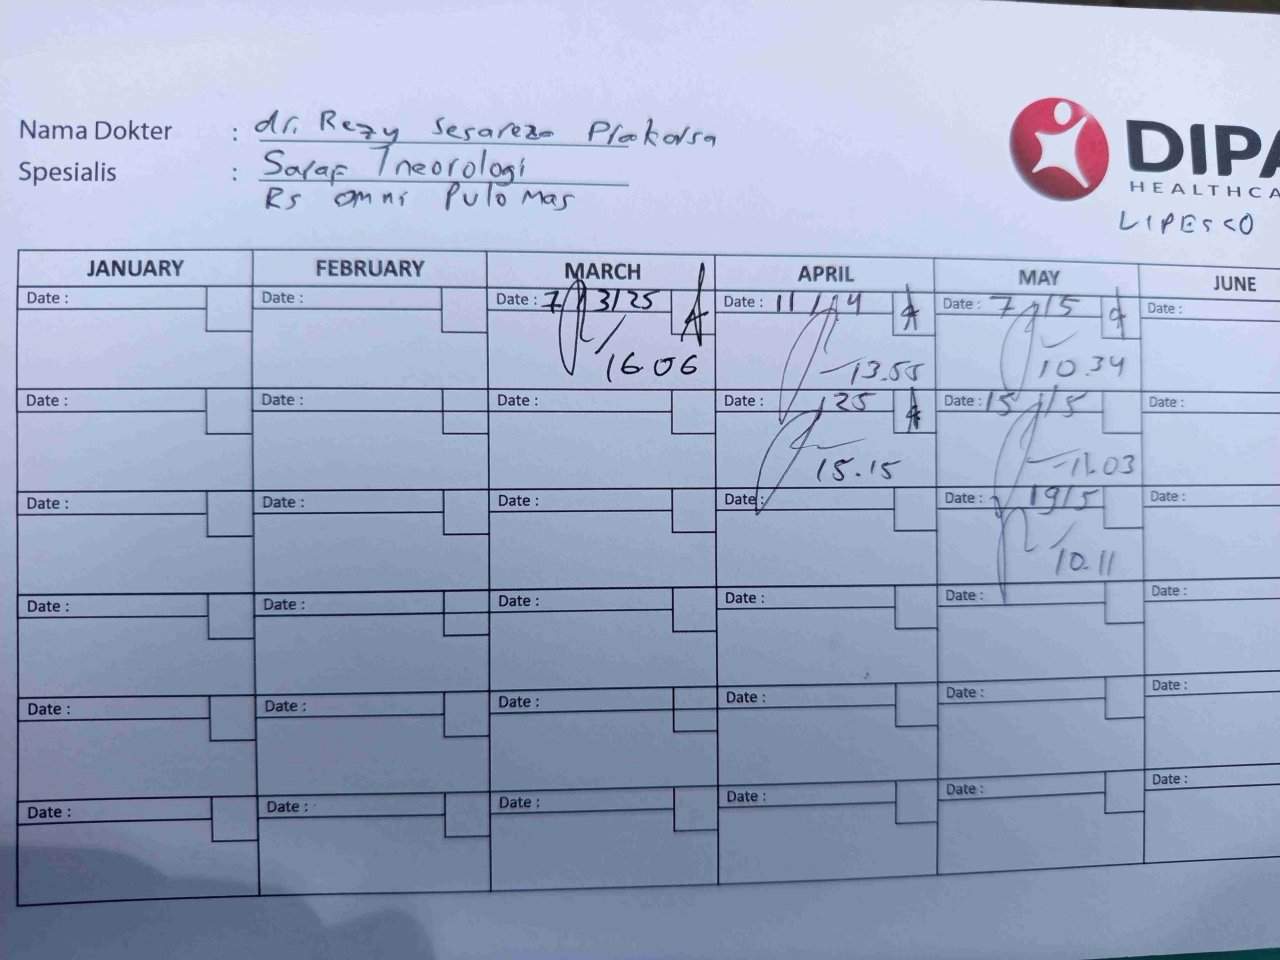 Nama Dokter : dr. Rezy Sesareza Prakarsa
Spesialis : Saraf / neorologi
Rs omni Pulo Mas
DIPA
HEALTHCA
LIPESCO
JANUARY FEBRUARY MARCH APRIL MAY JUNE
Date : Date : Date : 7/3/25 Date : 11/4 Date : 7/5 Date :
16.06 13.55 10.34
Date : Date : Date : Date : /25 Date : 15/5 Date :
15.15 11.03
Date : Date : Date : Date : Date : 19/5 Date :
10.11
Date : Date : Date : Date : Date : Date :
Date : Date : Date : Date : Date : Date :
Date : Date : Date : Date : Date : Date :